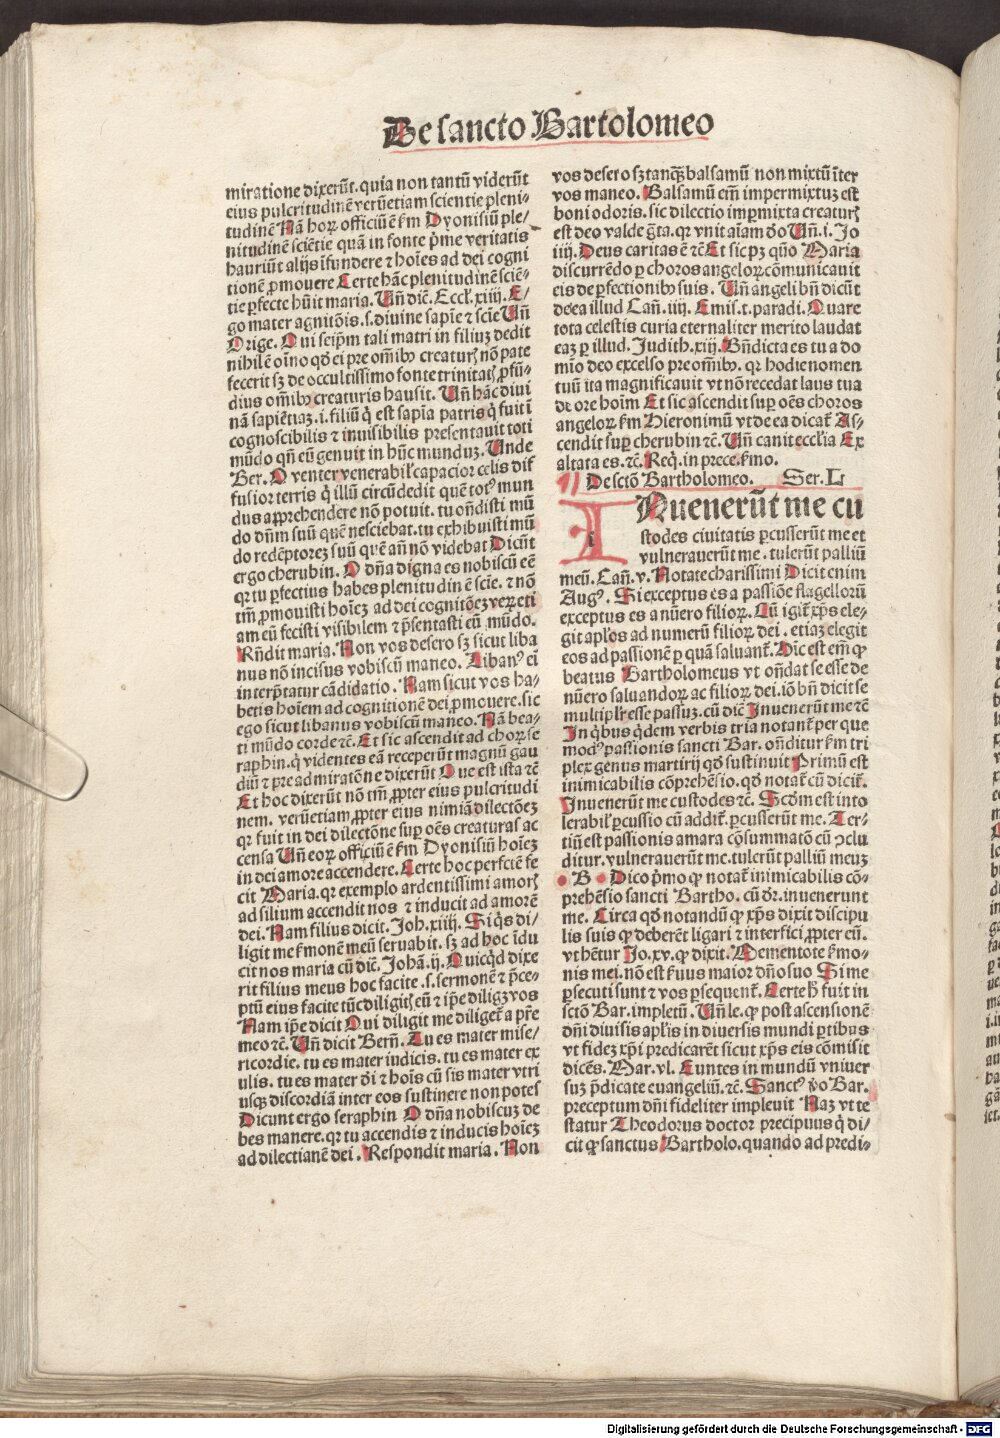 De sancto Bartolomeo
miratione dixerūt. quia non tantū viderūt
eius pulcritudinē verūetiam scientie pleni-
tudinē Nā hoꝝ officiū ē ẜm Dyonisiū ple/
nitudinē sciētie quā in fonte p̄me veritatis
hauriūt alijs īfundere ⁊ hoīes ad dei cogni
tionē ꝓmouere Certe hāc plenitudinē sciē-
tie ꝑfecte hūit maria. Un̄ dic̄. Eccl. xxiiij. E/
go mater agnitōis .s. diuine sapīe ⁊ scīe Un̄
Orige. Qui seip̄m tali matri in filiuꝫ dedit
nihilē oīno qd̄ ei pre om̄ibꝰ creaturꝭ nō pate
fecerit sꝫ de occultissimo fonte trinitatꝭ ꝓfū-
dius om̄ibꝰ creaturis hausit. Un̄ hāc diui
nā sapiētiaꝫ .i. filiū q̇ est sapīa patris q̇ fuit ī
cognoscibilis ⁊ inuisibilis presentauit toti
mūdo qn̄ eū genuit in hūc munduꝫ. Unde
Ber. O venter venerabilꝭ capacior celis dif
fusior terris q̇ illū circūdedit quē totꝰ mun
dus apprehendere nō potuit. tu on̄disti mū
do dn̄m suū quē nesciebat. tu exhibuisti mū
do redēptoreꝫ suū quē an̄ nō videbat Dicūt
ergo cherubin. O dn̄a digna es nobiscū eē
qꝛ tu ꝑfectius habes plenitudinē scīe. ⁊ nō
tm̄ ꝓmouisti hoīeꝫ ad dei cognitōeꝫ veꝝ eti
am eū fecisti visibilem ⁊ p̄sentasti eū mūdo.
Rn̄dit maria. Non vos desero sꝫ sicut liba
nus nō incisus vobiscū maneo. Libanꝰ em̄
interp̄tatur cādidatio. Nam sicut vos ha-
betis hoīem ad cognitionē dei ꝓmouere. sic
ego sicut libanus vobiscū maneo. Nā bea-
ti mūdo corde ⁊c̄. Et sic ascendit ad choꝝ se
raphin. q̇ videntes eā receperūt magnū gau
diū ⁊ pre admiratōne dixerūt Que est ista ⁊c̄
Et hoc dixerūt nō tm̄ ꝓpter eius pulcritudi
nem. verūetiam ꝓpter eius nimiā dilectōeꝫ
qꝛ fuit in dei dilectōne suꝑ oēs creaturas ac
censa Un̄ eoꝝ officiū ē ẜm Dyonisiū hoīeꝫ
in dei amore accendere. Certe hoc perfciē fe
cit Maria. qꝛ exemplo ardentissimi amorꝭ
ad filium accendit nos ⁊ inducit ad amorē
dei. Nam filius dicit. Joh. xiiij. Si q̇s di/
ligit me ẜmonē meū seruabit. sꝫ ad hoc īdu
cit nos maria cū dic̄. Johā. ij. Quicq̇d dixe
rit filius meus hoc facite .s. sermonē ⁊ p̄ce-
ptū eius facite tūc diligitꝭ eū ⁊ ip̄e diligꝫ vos
Nam ip̄e dicit Qui diligit me diliget̄ a p̄re
meo ⁊c̄. Un̄ dicit Bern̄. Tu es mater mise/
ricordie. tu es mater iudicis. tu es mater ex
ulis. tu es mater d̄i ⁊ hoīs cū sis mater vtri
usqꝫ discordiā inter eos sustinere non potes
Dicunt ergo seraphin O dn̄a nobiscuꝫ de
bes manere. qꝛ tu accendis ⁊ inducis hoieꝫ
ad dilectianē dei. Respondit maria. Non
vos desero sꝫ tanqꝫ balsamū non mixtū īter
vos maneo. Balsamū em̄ impermixtuꝫ est
boni odoris. sic dilectio imꝑmixta creaturꝭ
est deo valde gr̄ta. qꝛ vnit aīam deo Un̄ .i. Jo
iiij. Deus caritas ē ⁊c̄ Et sic pꝫ quō Maria
discurrēdo ꝑ choros angeloꝝ cōmunicauit
eis de ꝑfectionibꝰ suis. Un̄ angeli bn̄ dicūt
de ea illud Can̄. iiij. Emis. t. paradi. Quare
tota celestis curia eternaliter merito laudat
eaꝫ ꝑ illud. Judith. xiij. Bn̄dicta es tu a do
mīo deo excelso pre om̄ibꝰ. qꝛ hodie nomen
tuū ita magnificauit vt nō recedat laus tua
de ore hoīm Et sic ascendit suꝑ oēs choros
angeloꝝ ẜm Hieronimū vt de ea dicat̄ As-
cendit suꝑ cherubin ⁊c̄. Un̄ canit eccl̄ia Ex
altata es. ⁊c̄. Req̄. in prece. ẜmo.
De sctō Bartholomeo. Ser. L
INuenerūt me cu
stodes ciuitatis ꝑcusserūt me et
vulnerauerūt me. tulerūt palliū
meū. Can̄. v. Notate charissimi Dicit enim
Augꝰ. Si exceptus es a passiōe flagelloꝝ
exceptus es a nūero filioꝝ. Cū igit̄ xp̄s ele-
git apl̄os ad numerū filioꝝ dei. etiaꝫ elegit
eos ad passionē ꝑ quā saluant̄. Dic est em̄ ꝙ
beatus Bartholomeus vt on̄dat se esse de
nūero saluandoꝝ ac filioꝝ dei. iō bn̄ dicit se
multiplr̄ esse passuꝫ. cū dic̄ Inuenerūt me ⁊c̄
In q̇bus q̇dem verbis tria notant̄ per que
modꝰ passionis sancti Bar. on̄ditur ẜm tri
plex genus martirij qd̄ sustinuit Primū est
inimicabilis cōprehēsio. qd̄ notat̄ cū dicit̄.
Inuenerūt me custodes ⁊c̄. Scd̄m est into
lerabilꝭ ꝑcussio cū addit̄. ꝑcusserūt me. Ter-
tiū est passionis amara cōsummatō cū ꝯclu
ditur. vulnerauerūt me. tulerūt palliū meuꝫ
B Dico p̄mo ꝙ notat̄ inimicabilis cō-
prehēsio sancti Bartho. cū dr̄. inuenerunt
me. Circa qd̄ notandū ꝙ xp̄s dixit discipu
lis suis ꝙ deberēt ligari ⁊ interfici ꝓpter eū.
vt hētur Jo. xv. ꝙ dixit. Mementote ẜmo-
nis mei. nō est ẜuus maior dn̄o suo Si me
ꝑsecuti sunt ⁊ vos ꝑsequent̄. Certe h̄ fuit in
sctō Bar. impletū. Un̄ le. ꝙ post ascensionē
dn̄i diuisis apl̄is in diuersis mundi ꝑtibus
vt fideꝫ xp̄i predicarēt sicut xp̄s eis cōmisit
dicēs. Mar. vl. Euntes in mundū vniuer
suꝫ p̄dicate euangeliū. ⁊c̄. Sanctꝰ ꝟo Bar.
preceptum dn̄i fideliter impleuit Naꝫ vt te
statur Theodorus doctor precipuus q̇ di/
cit ꝙ sanctus Bartholo. quando ad predi-
Digitalisierung gefördert durch die Deutsche Forschungsgemeinschaft - DFG